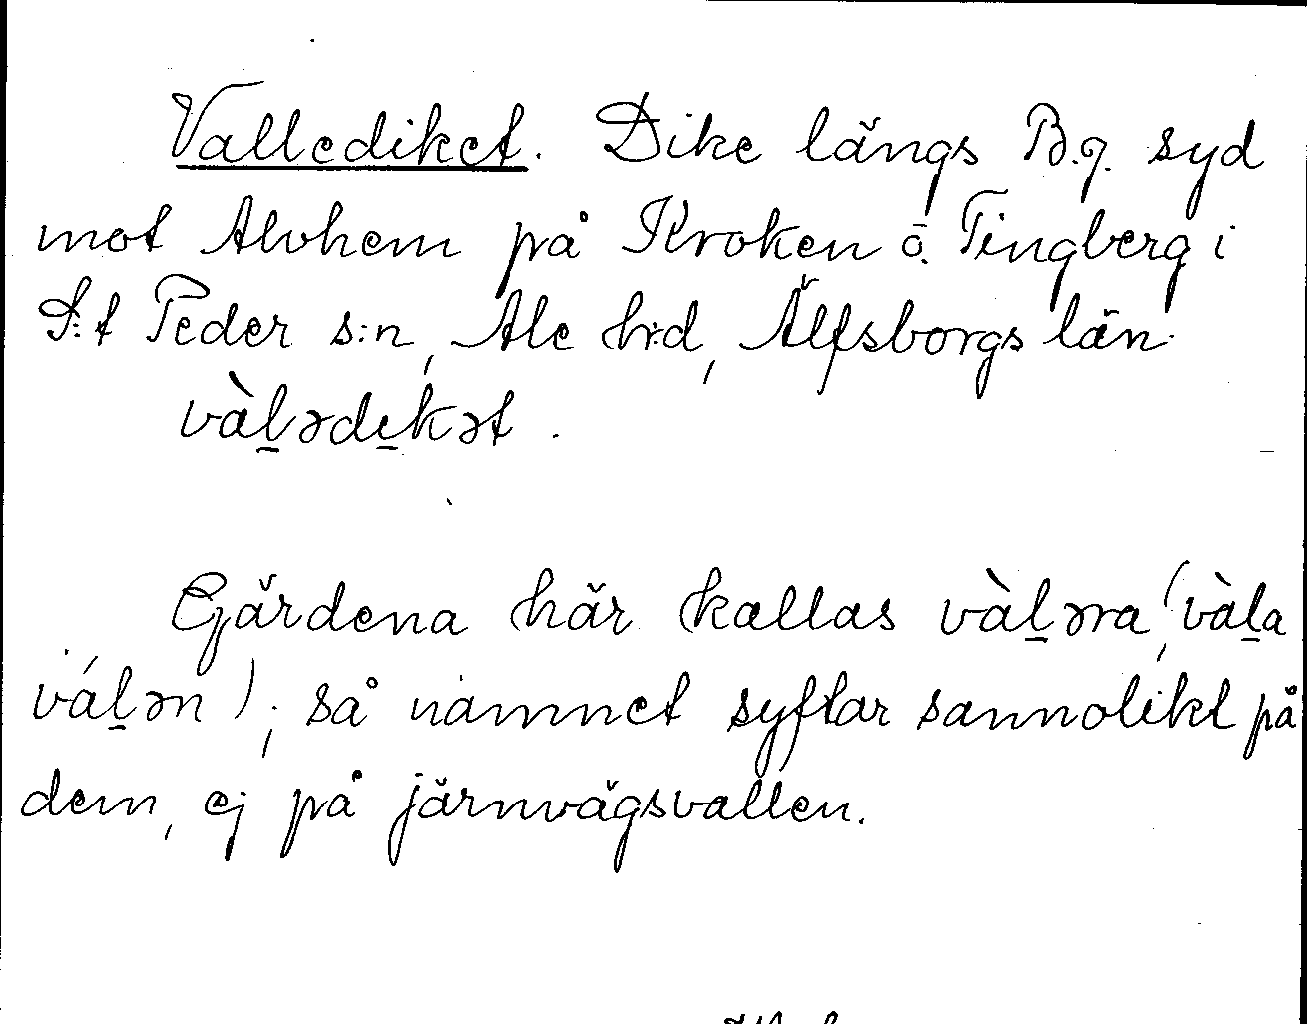 Valledikct. Dike längs B.g. syd
mot Alvhem på Kroken ö. Tingberg i
S:t Peder s:n, Ale h:d, Älfsborgs län.
vàḻəde̱kət.
Gärdena här kallas vàḻəra (vàḻa,
váḻən); så namnet syftar sannolikt på
dem, ej på järnvägsvallen.